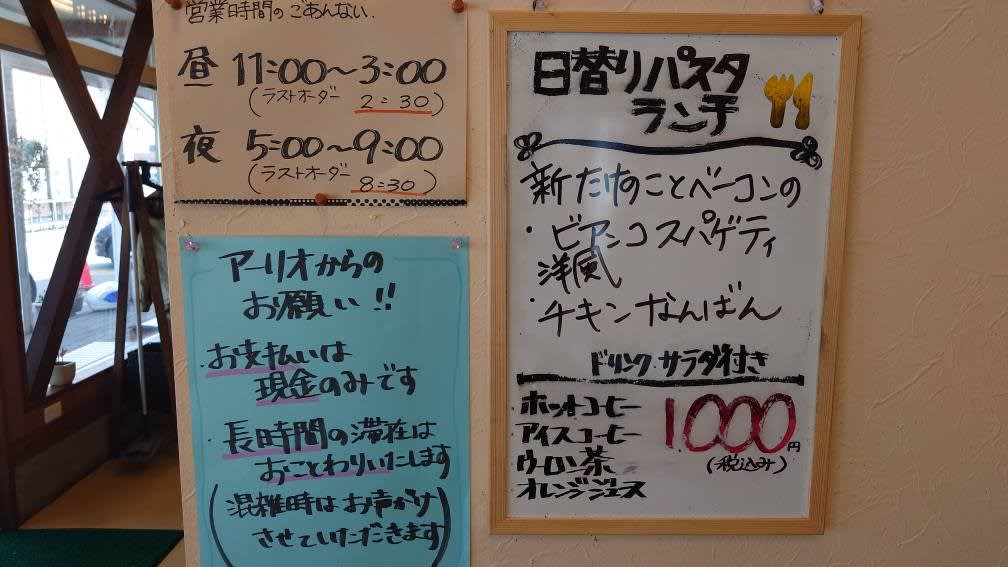 営業時間のごあんない.
昼 11:00〜3:00
(ラストオーダー 2:30)
夜 5:00〜9:00
(ラストオーダー 8:30)
アーリオからの
お願い!!
・お支払いは
現金のみです
・長時間の滞在は
おことわりいたします
(混雑時はお声がけ
させていただきます)
日替りパスタ
ランチ
新たけのことベーコンの
・ビアンコスパゲティ
洋風
・チキンなんばん
ドリンク サラダ付き
ホットコーヒー
アイスコーヒー
ウーロン茶
オレンジジュース
1000円
(税込み)